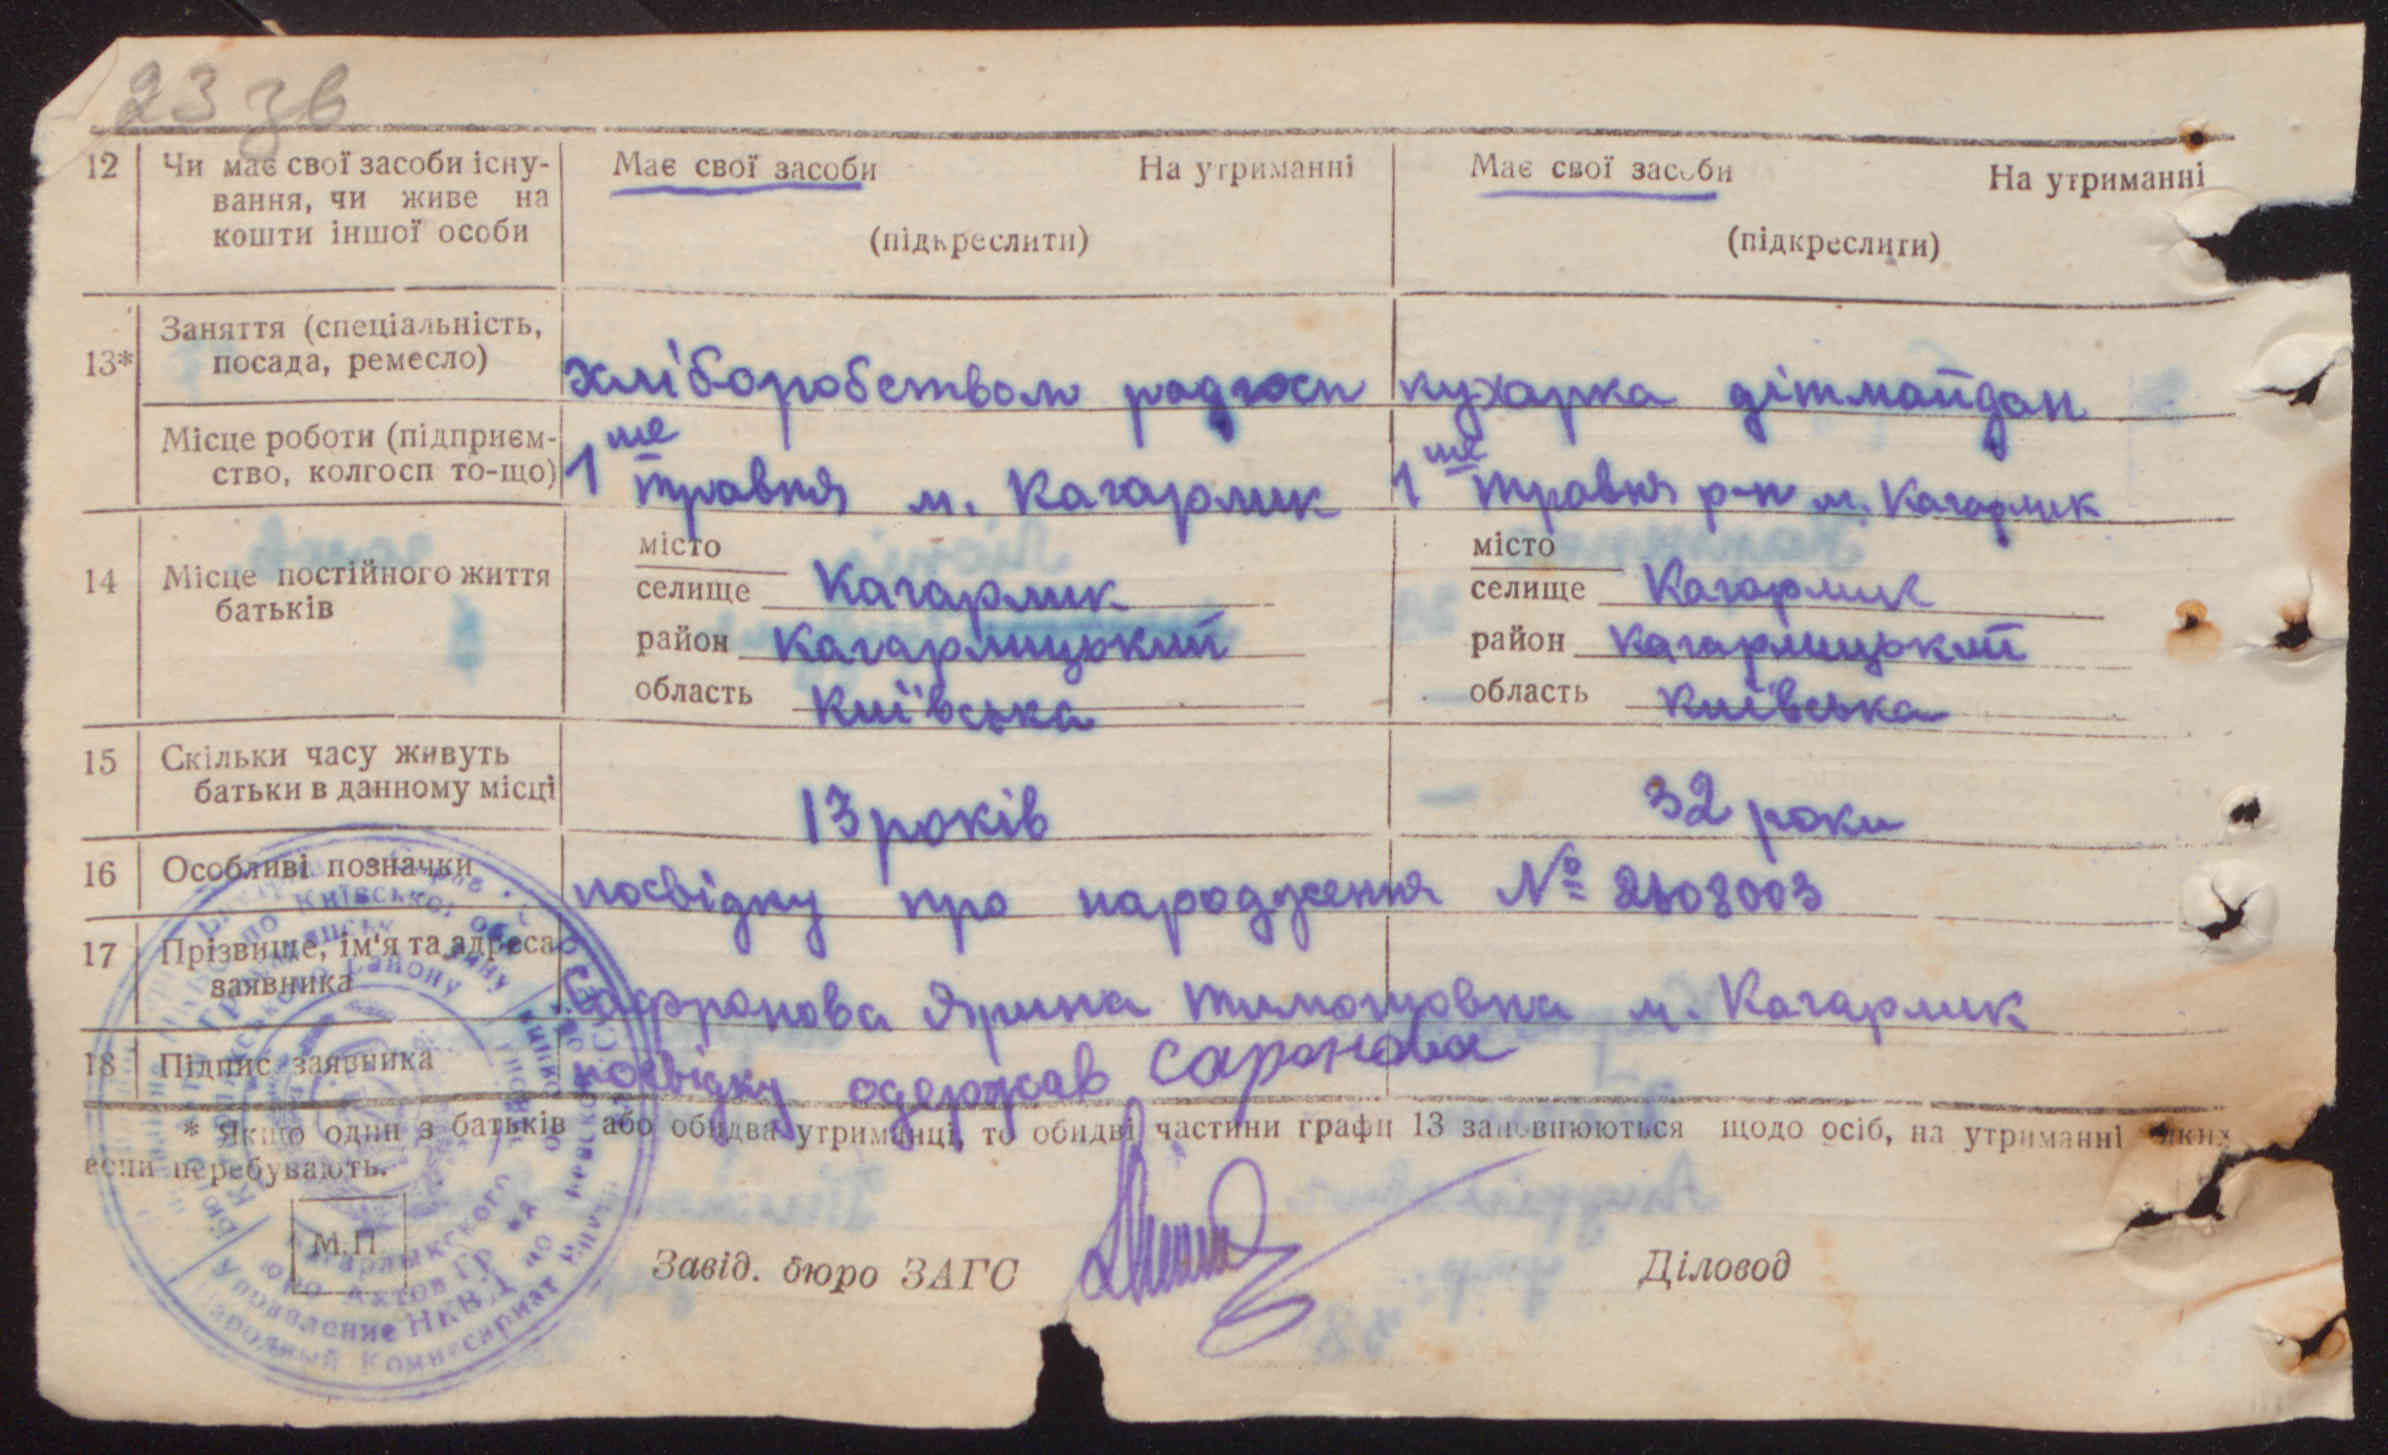 23 зв
12 Чи має свої засоби існу- Має свої засоби На утриманні Має свої засоби На утриманні
вання, чи живе на
кошти іншої особи (підкреслити) (підкреслити)
13* Заняття (спеціальність,
посада, ремесло) хліборобством радгосп кухарка дітмайдан
Місце роботи (підприєм-
ство, колгосп то-що) 1ше травня м. Кагарлик 1ше травня р-н м. Кагарлик
місто місто
14 Місце постійного життя селище Кагарлик селище Кагарлик
батьків район Кагарлицький район Кагарлицький
область Київська область Київська
15 Скільки часу живуть
батьки в данному місці 13 років 32 роки
16 Особливі позначки посвідку про народження № 2108003
17 Прізвище, ім'я та адреса
заявника Сафронова Ярина Тимошовна м. Кагарлик
18 Підпис заявника посвідку одержав Сафронова
* Якщо один з батьків або обидва утриманці, то обидві частини графи 13 заповнюються щодо осіб, на утриманні яких
если перебувають.
М.П.
Завід. бюро ЗАГС Діловод
Управление НКВД по
Народный Комиссариат